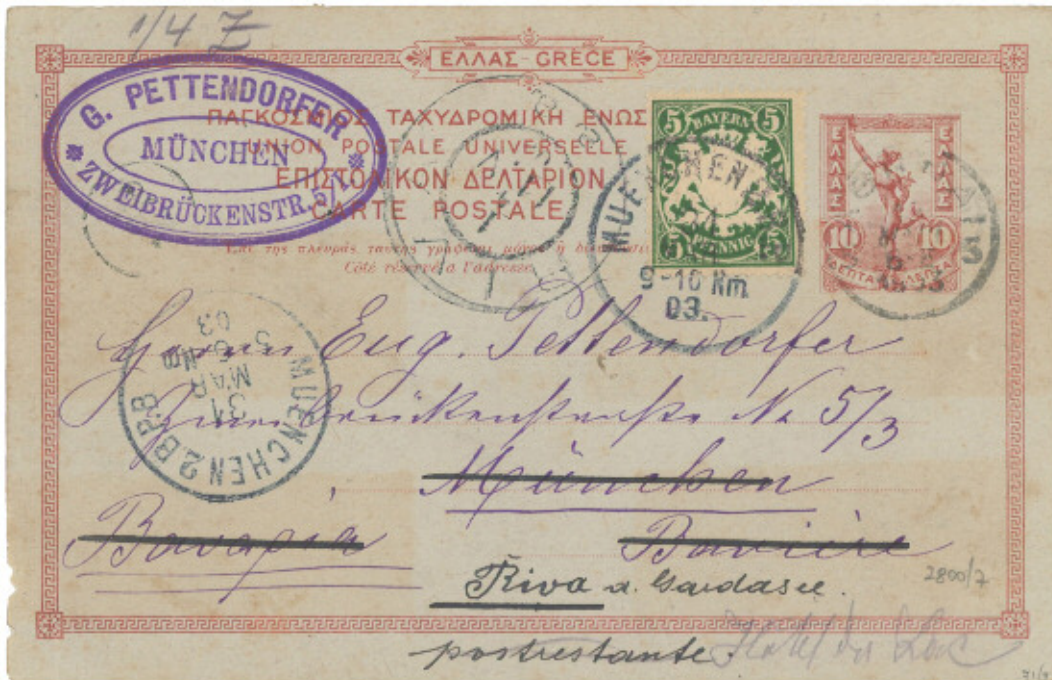 1/4 Z
ΕΛΛΑΣ - GRÈCE
G. PETTENDORFER
MÜNCHEN
ZWEIBRÜCKENSTR. 5/1
ΠΑΓΚΟΣΜΙΟΣ ΤΑΧΥΔΡΟΜΙΚΗ ΕΝΩΣ
UNION POSTALE UNIVERSELLE
ΕΠΙΣΤΟΛΙΚΟΝ ΔΕΛΤΑΡΙΟΝ
CARTE POSTALE
Ἐπὶ τῆς πλευρᾶς ταύτης γράφεται μόνον ἡ
Côté réservé a l'adresse
5 BAYERN 5
5 PFENNIG 5
MUENCHEN
9-10 Nm.
03.
ΕΛΛΑΣ ΕΛΛΑΣ
10 10
ΛΕΠΤΑ
MUENCHEN 2 B.P.B
31
MAR
5-6 Nm
03
Herrn Eug. Pettendorfer
Zweibrückenstraße No 5/3
München
Bavaria Bavière
Riva a. Gardasee.
postrestante. Hotel du Lac
2800/7